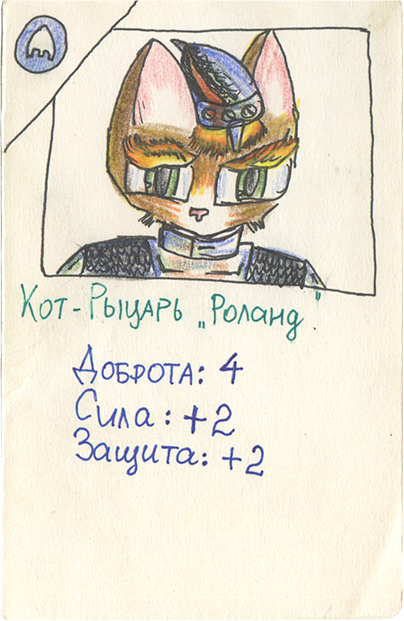 Кот-Рыцарь „Роланд."
Доброта: 4
Сила: +2
Защита: +2